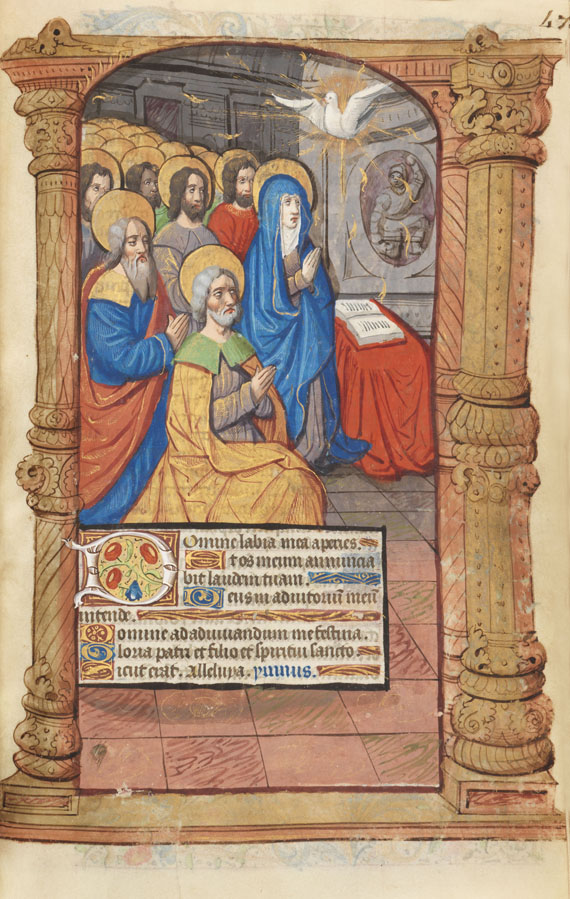 47
Domine labia mea aperies.
Et os meum annuncia
bit laudem tuam.
Deus in adiutoriū meū
intende.
Domine ad adiuuandum me festina
Gloria patri et filio et spiritui sancto.
Sicut erat. Alleluya. ymnus.